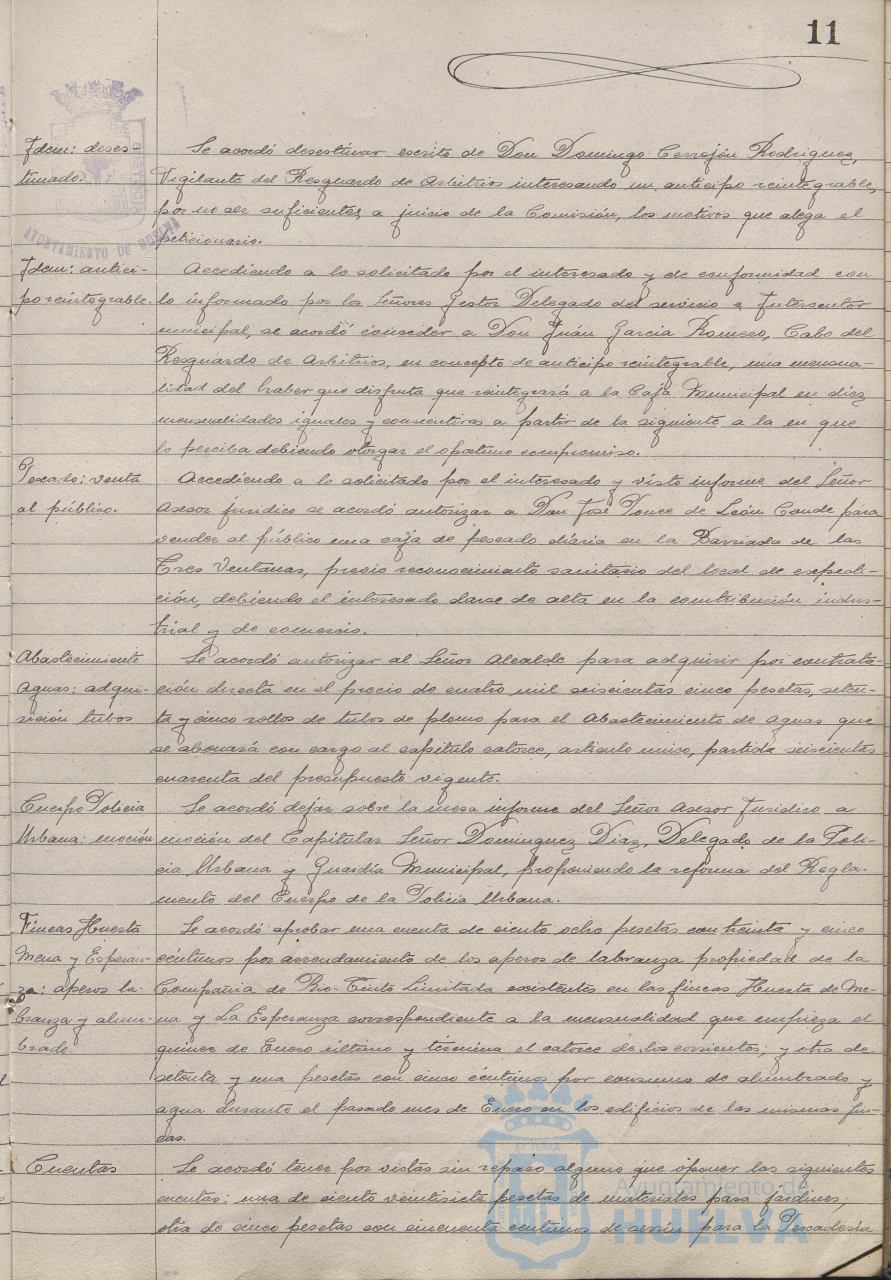 11
Idem: deses-
timado.
Se acordó desestimar escrito de Don Domingo Cerrejón Rodriguez,
Vigilante del Resguardo de Arbitrios interesando un anticipo reintegrable,
por no ser suficientes, a juicio de la Comisión, los motivos que alega el
peticionario.
AYUNTAMIENTO DE HUELVA
Idem: antici-
po reintegrable.
Accediendo a lo solicitado por el interesado y de conformidad con
lo informado por los Señores Gestor Delegado del servicio e Interventor
municipal, se acordó conceder a Don Juán Garcia Romero, Cabo del
Resguardo de Arbitrios, en concepto de anticipo reintegrable, una mensua-
lidad del haber que disfruta que reintegrará a la Caja Municipal en diez
mensualidades iguales y consecutivas a partir de la siguiente a la en que
lo perciba debiendo otorgar el oportuno compromiso.
Pescado: venta
al público.
Accediendo a lo solicitado por el interesado y visto informe del Señor
Asesor Jurídico se acordó autorizar a Don José Ponce de León Conde para
vender al público una caja de pescado diária en la Barriada de las
Tres Ventanas, previo reconocimiento sanitario del local de expedi-
ción, debiendo el interesado darse de alta en la contribución indus-
trial y de comercio.
Abastecimiento
Aguas: adqui-
sición tubos
Se acordó autorizar al Señor Alcalde para adquirir por contrata-
ción directa en el precio de cuatro mil seiscientas cinco pesetas, seten-
ta y cinco rollos de tubos de plomo para el Abastecimiento de Aguas que
se abonará con cargo al capítulo catorce, artículo unico, partida seiscientas
cuarenta del presupuesto vigente.
Cuerpo Policia
Urbana: moción
Se acordó dejar sobre la mesa informe del Señor Asesor Jurídico a
moción del Capitular Señor Dominguez Diaz, Delegado de la Poli-
cia Urbana y Guardia Municipal, proponiendo la reforma del Regla-
mento del Cuerpo de la Policia Urbana.
Fincas Huerta
Mena y Esperan-
za: aperos la-
branza y alum-
brado.
Se acordó aprobar una cuenta de ciento ocho pesetas con treinta y cinco
céntimos por arrendamiento de los aperos de labranza propiedad de la
Compañia de Rio-Tinto Limitada existentes en las fincas Huerta de Me-
na y La Esperanza correspondiente a la mensualidad que empieza el
quince de Enero último y termina el catorce de los corrientes; y otra de
setenta y una pesetas con cinco céntimos por consumo de alumbrado y
agua durante el pasado mes de Enero en los edificios de las mismas fin-
cas.
Cuentas
Se acordó tener por vistas sin reparo alguno que oponer las siguientes
cuentas: una de ciento veintisiete pesetas de materiales para jardines;
otra de cinco pesetas con cincuenta centimos de serrín para la Pescadería
Ayuntamiento de
HUELVA